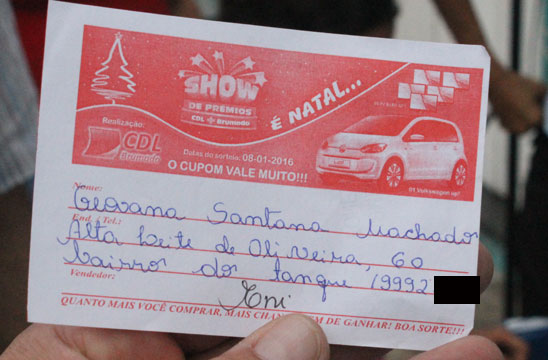 SHOW
DE PRÊMIOS
CDL Brumado
É NATAL...
Realização:
CDL
Brumado
Data do sorteio: 08-01-2016
O CUPOM VALE MUITO!!!
01 Volkswagen up!
Nome:
Geovana Santana Machado
End. / Tel.:
Alta Leite de Oliveira, 60
bairro do tanque 19992
Vendedor:
Eni
QUANTO MAIS VOCÊ COMPRAR, MAIS CHAN EM DE GANHAR! BOA SORTE!!!